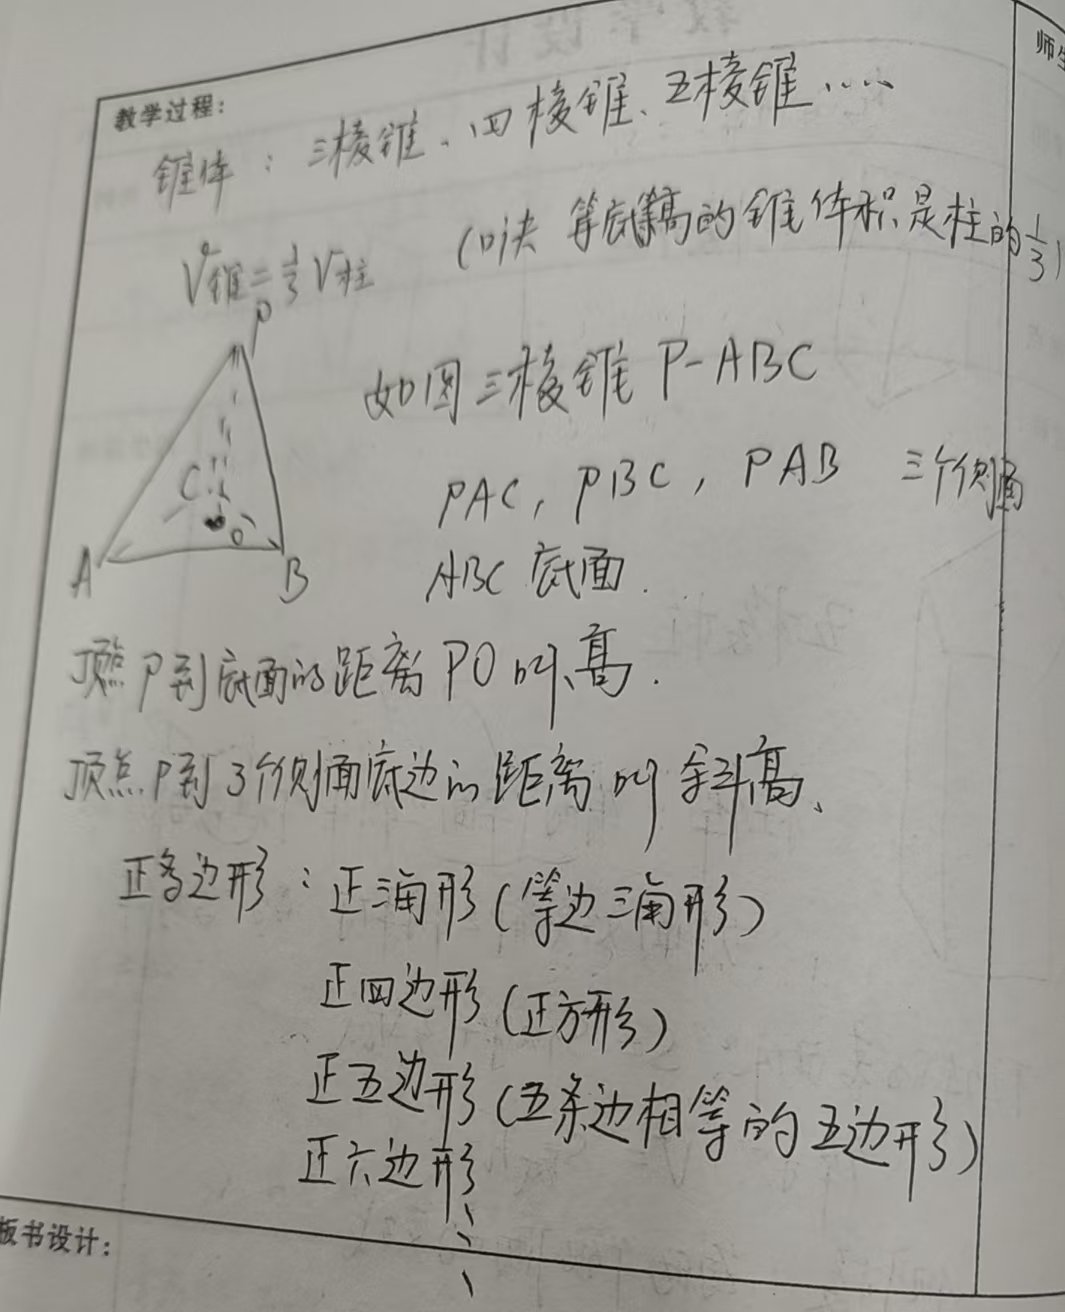 师生
教学过程：
锥体：三棱锥、四棱锥、五棱锥……
V锥=1/3 V柱 (口诀 等底等高的锥体积是柱的1/3)
P
如图三棱锥 P-ABC
C
PAC, PBC, PAB 三个侧面
O
A
B
ABC 底面.
顶点P到底面的距离PO叫高.
顶点P到3个侧面底边的距离叫斜高、
正多边形：正三角形(等边三角形)
正四边形(正方形)
正五边形(五条边相等的五边形)
正六边形
板书设计：